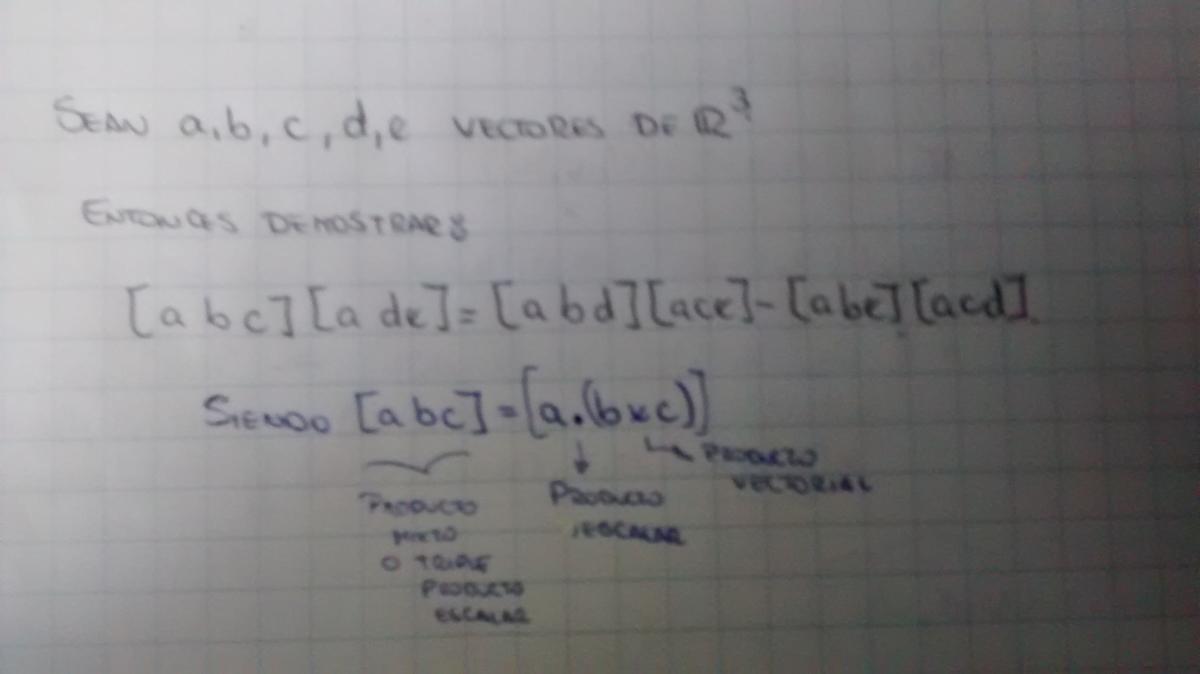 SEAN a, b, c, d, e VECTORES DE ℝ³
ENTONCES DEMOSTRAR:
[a b c][a d e] = [a b d][a c e] - [a b e][a c d].
SIENDO [a b c] = [a.(b×c)]
PRODUCTO MIXTO O TRIPLE PRODUCTO ESCALAR
PRODUCTO ESCALAR
PRODUCTO VECTORIAL